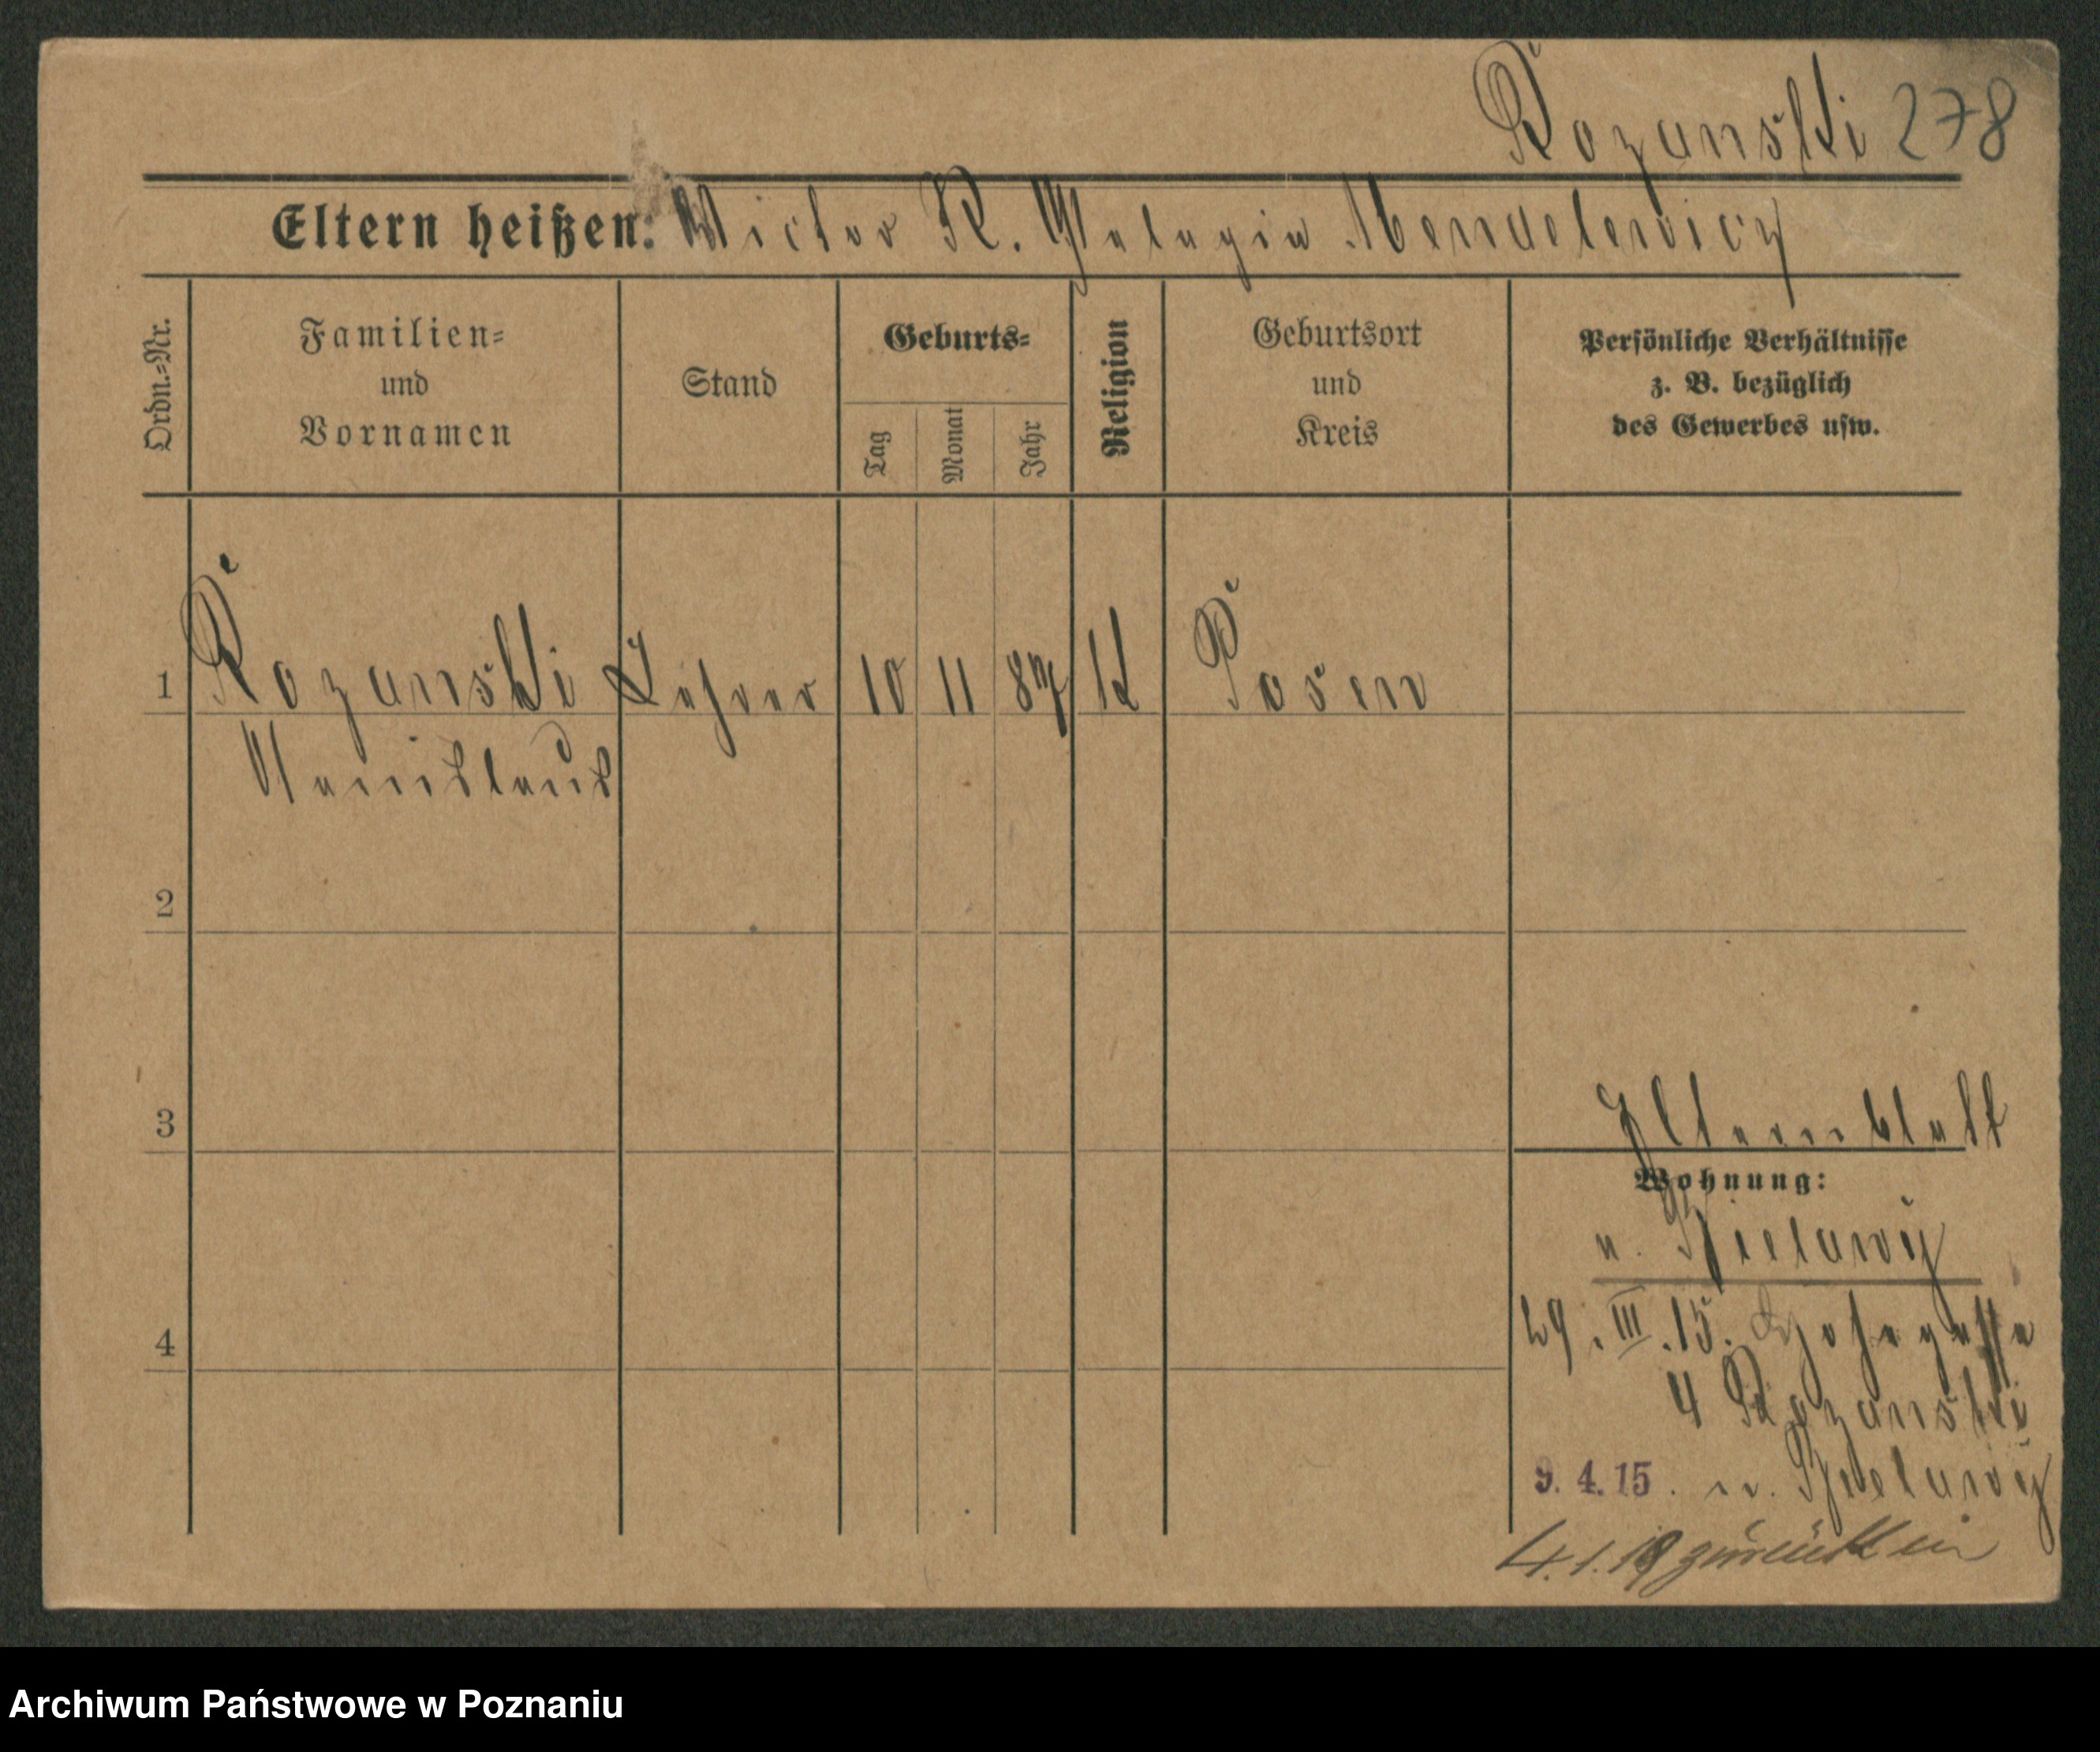 Rozanski 278
Eltern heißen: Victor R. Pelagia Mendelewicz
Ordn.=Nr.
Familien=
und
Vornamen
Stand
Geburts=
Tag
Monat
Jahr
Religion
Geburtsort
und
Kreis
Persönliche Verhältnisse
z. B. bezüglich
des Gewerbes usw.
1 Rozanski Lehrer 10 11 87 K Posen
2
3
Elternblatt
Wohnung:
n. Bielawy
4
29. III. 15.
4 Rozanski
9. 4. 15. n. Bielawy
4.1.18 zurück in
Archiwum Państwowe w Poznaniu